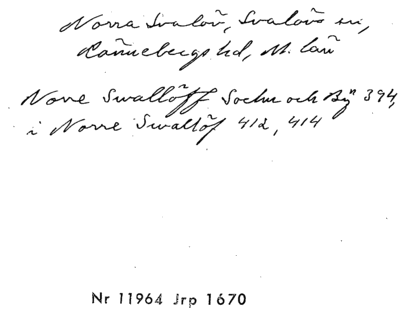 Norra Svalöv, Svalövs sn,
Rönnebergs hd, M. län
Norre Swallöff Sochn och Byn 394,
i Norre Swallöf 412, 414
Nr 11964 Jrp 1670